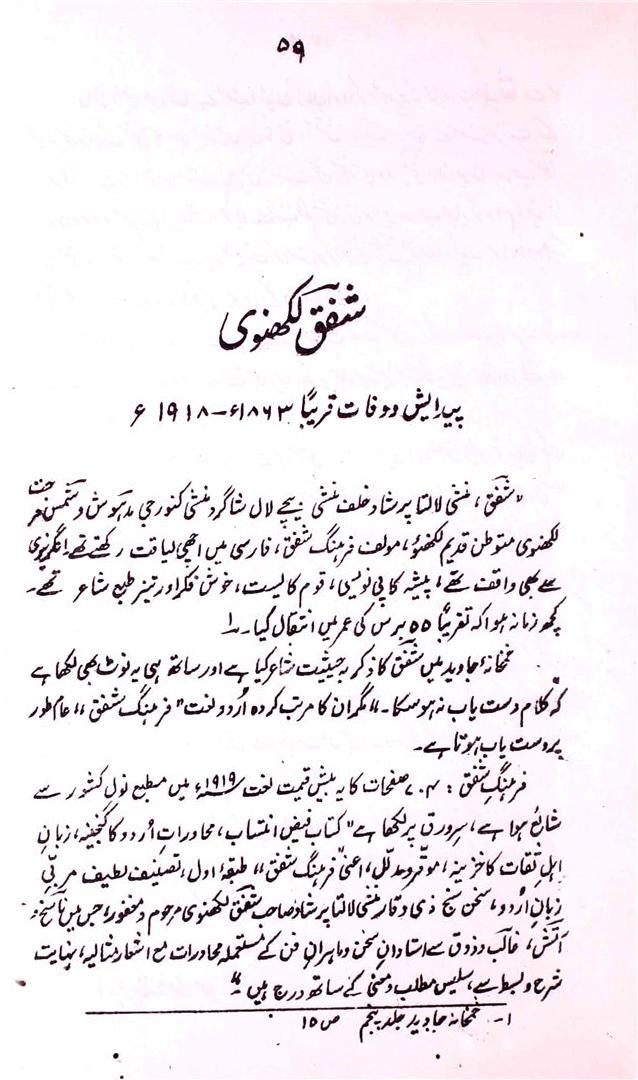 ۵۹
شفقؔ لکھنوی
پیدایش و وفات قریباً ۱۸۶۳ء - ۱۹۱۸ء
"شفقؔ، منشی لالتا پرشاد خلف منشی بیچے لال شاگرد منشی کنور جی مدہوش و شمس
لکھنوی متوطن قدیم لکھنؤ، مولف فرہنگ شفق، فارسی میں اچھی لیاقت رکھتے تھے انگریزی
سے بھی واقف تھے، پیشہ کاپی نویسی، قوم کایست، خوش فکر اور تیز طبع شاعر تھے۔
کچھ زمانہ ہوا کہ تقریباً ۵۵ برس کی عمر میں انتقال کیا۔ ۱
خمخانۂ جاوید میں شفق کا ذکر بہ حیثیت شاعر کیا ہے اور ساتھ ہی یہ نوٹ بھی لکھا ہے
کہ کلام دست یاب نہ ہوسکا۔ "مگر ان کا مرتب کردہ اُردو لغت "فرہنگ شفق"، عام طور
پر دست یاب ہوتا ہے۔
فرہنگِ شفق : ۷۰۴ صفحات کا یہ بیش قیمت لغت ۱۹۱۹ء میں مطبع نول کشور سے
شائع ہوا ہے، سرورق پر لکھا ہے "کتاب فیض انتساب، محاوراتِ اُردو کا گنجینہ، زبانِ
اہلِ ثقات کا خزینہ، موقر و مدلّل، اعنی فرہنگ شفق"، طبقۂ اول، تصنیف لطیف مربّیِ
زبانِ اُردو، سخن سنج ذی وقار منشی لالتا پرشاد صاحب شفقؔ لکھنوی مرحوم و مغفور، جس میں ناسخؔ و
آتشؔ، غالبؔ و ذوقؔ سے استادانِ سخن و ماہرانِ فن کے مستعملہ محاورات مع اشعار مثالیہ، نہایت
شرح و بسط سے، سلیس مطلب و معنی کے ساتھ درج ہیں"
۱- خمخانہ جاوید جلد پنجم ص ۱۵